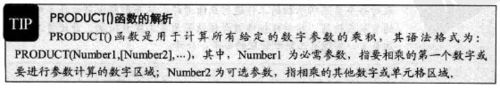 TIP
PRODUCT()函数的解析
PRODUCT()函数是用于计算所有给定的数字参数的乘积，其语法格式为：
PRODUCT(Number1,[Number2],...)，其中，Number1 为必需参数，指要相乘的第一个数字或
要进行参数计算的数字区域；Number2 为可选参数，指相乘的其他数字或单元格区域．